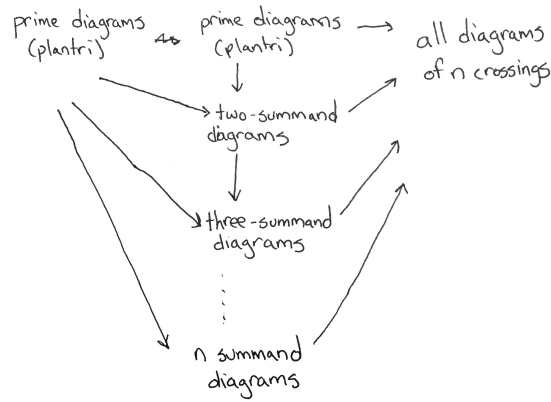 prime diagrams
(plantri)
prime diagrams
(plantri)
all diagrams
of n crossings
two-summand
diagrams
three-summand
diagrams
n summand
diagrams